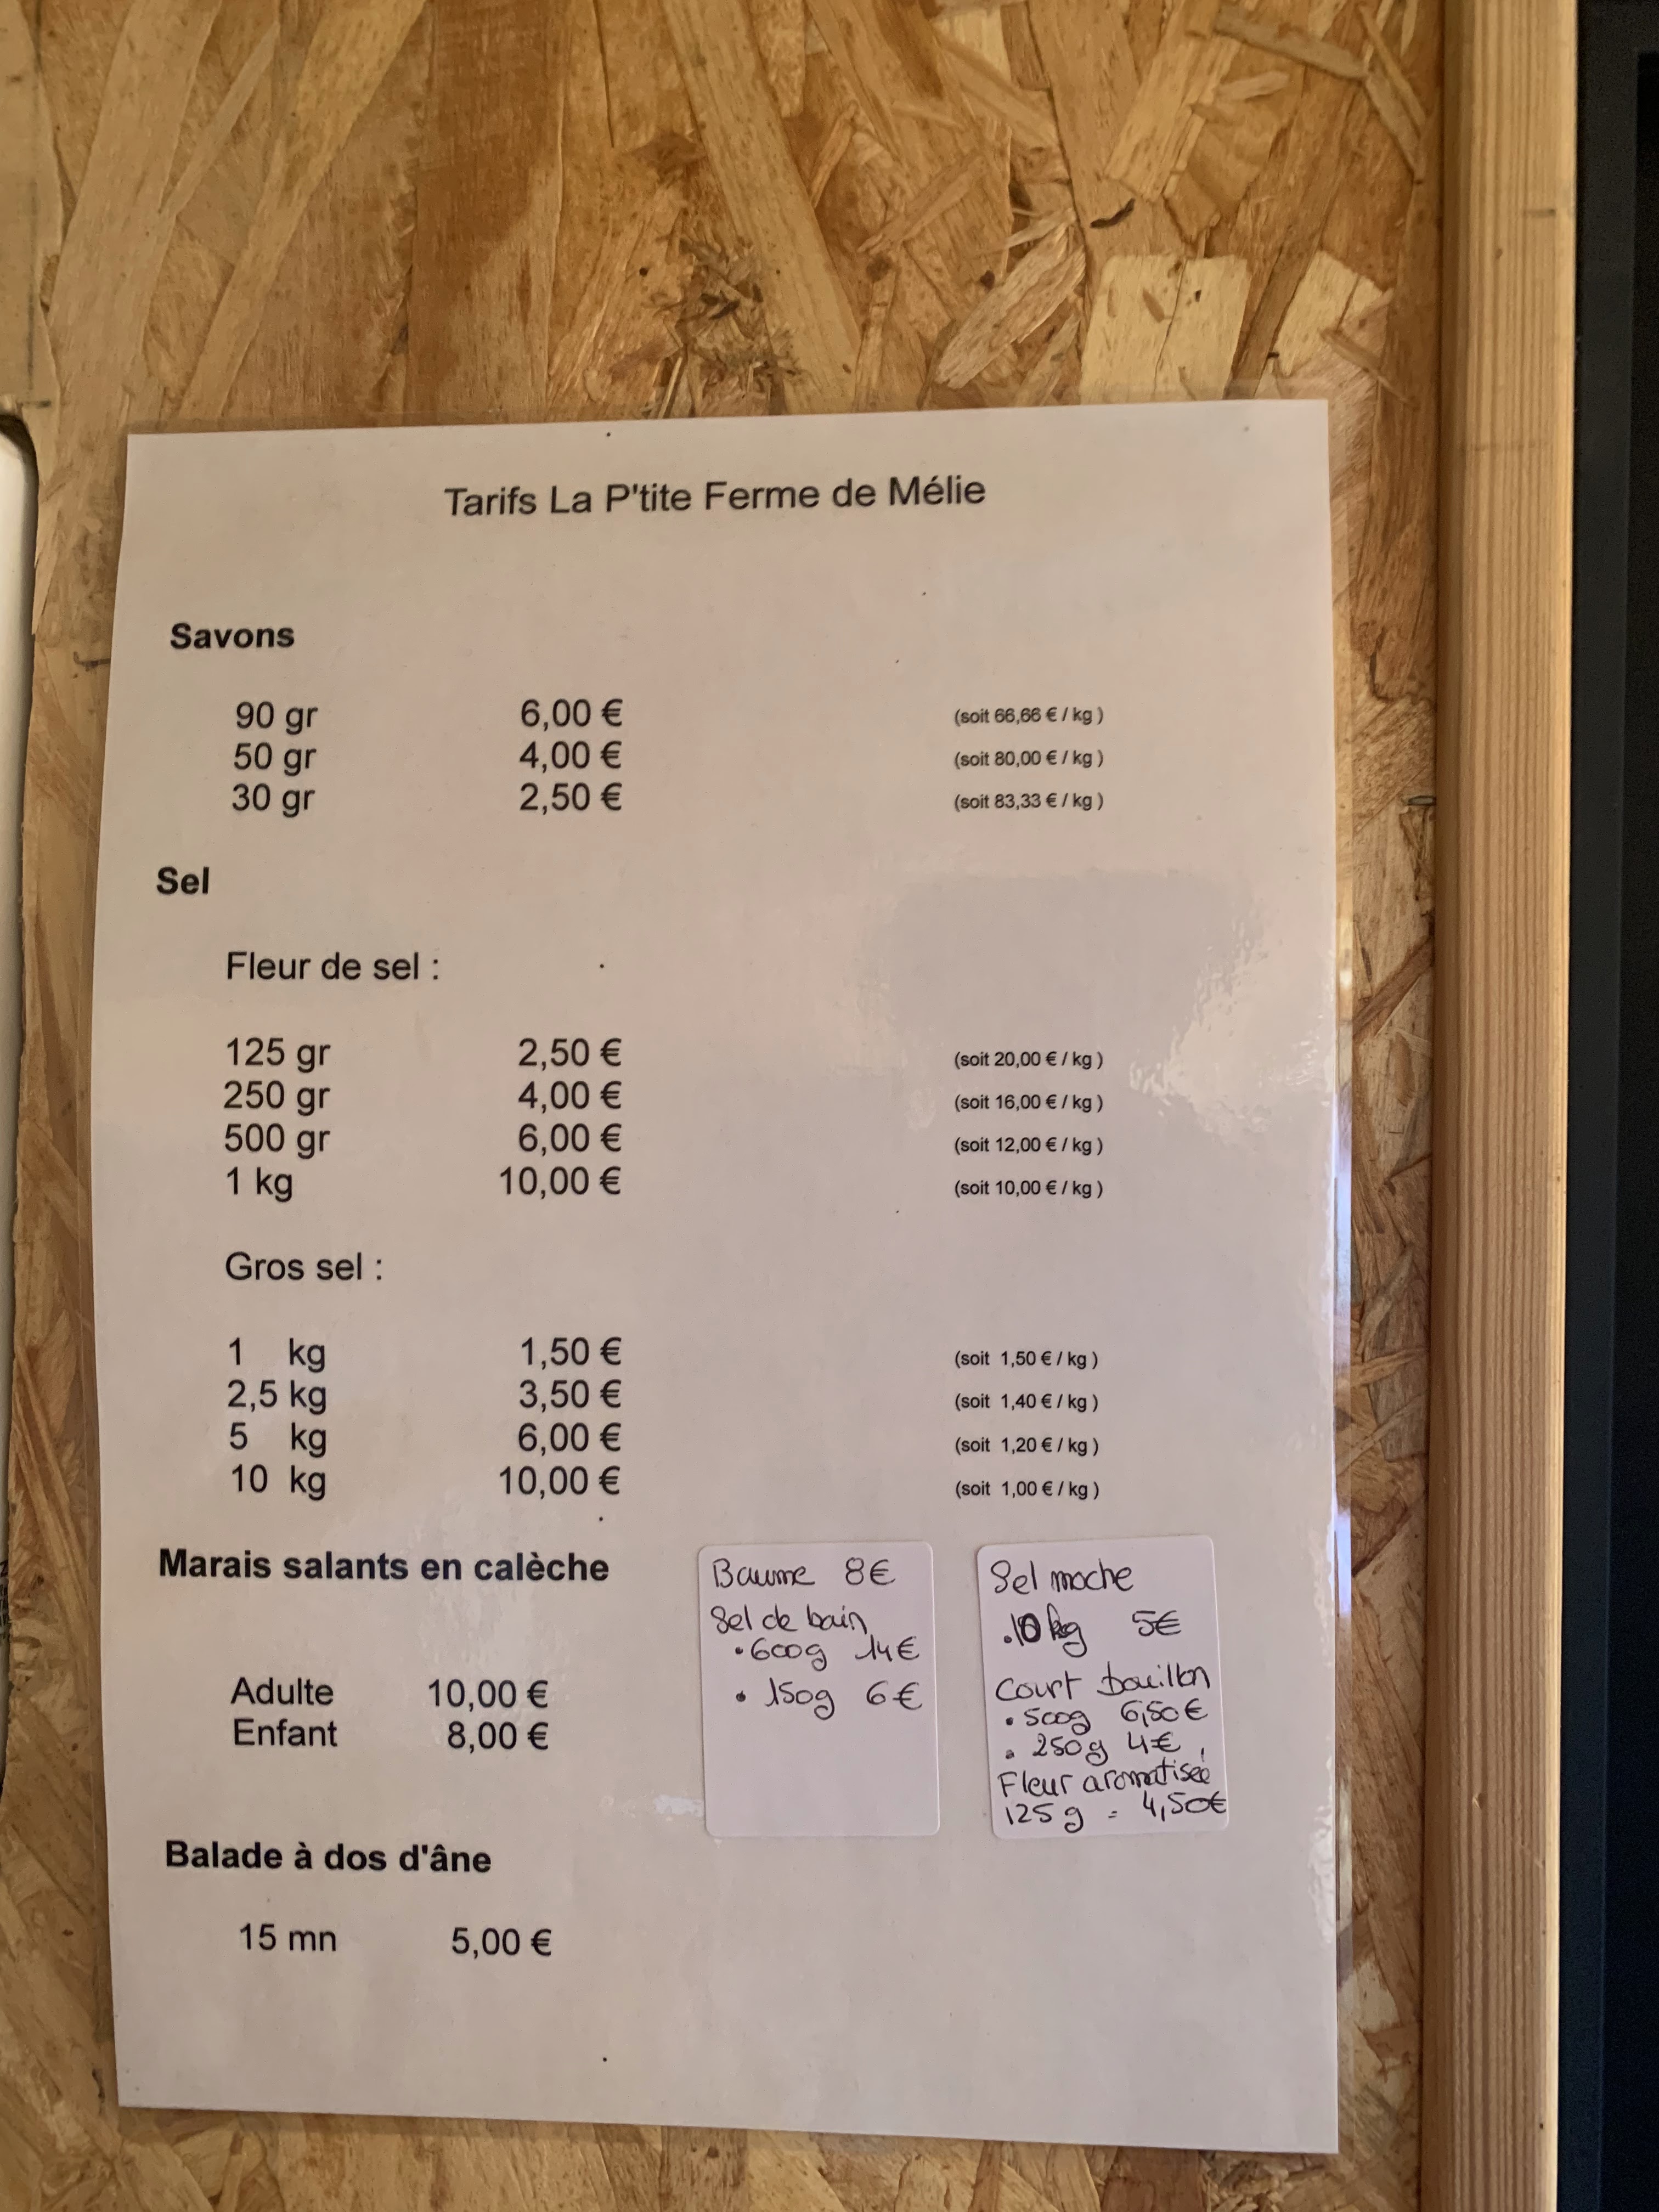 Tarifs La P'tite Ferme de Mélie
Savons
90 gr 6,00 € (soit 66,66 € / kg )
50 gr 4,00 € (soit 80,00 € / kg )
30 gr 2,50 € (soit 83,33 € / kg )
Sel
Fleur de sel :
125 gr 2,50 € (soit 20,00 € / kg )
250 gr 4,00 € (soit 16,00 € / kg )
500 gr 6,00 € (soit 12,00 € / kg )
1 kg 10,00 € (soit 10,00 € / kg )
Gros sel :
1 kg 1,50 € (soit 1,50 € / kg )
2,5 kg 3,50 € (soit 1,40 € / kg )
5 kg 6,00 € (soit 1,20 € / kg )
10 kg 10,00 € (soit 1,00 € / kg )
Marais salants en calèche
Adulte 10,00 €
Enfant 8,00 €
Baume 8€
Sel de bain
• 600g 14€
• 150g 6€
Sel moche
. 10 kg 5€
Court bouillon
• 500g 6,50€
• 250g 4€
Fleur aromatisée
125 g = 4,50€
Balade à dos d'âne
15 mn 5,00 €